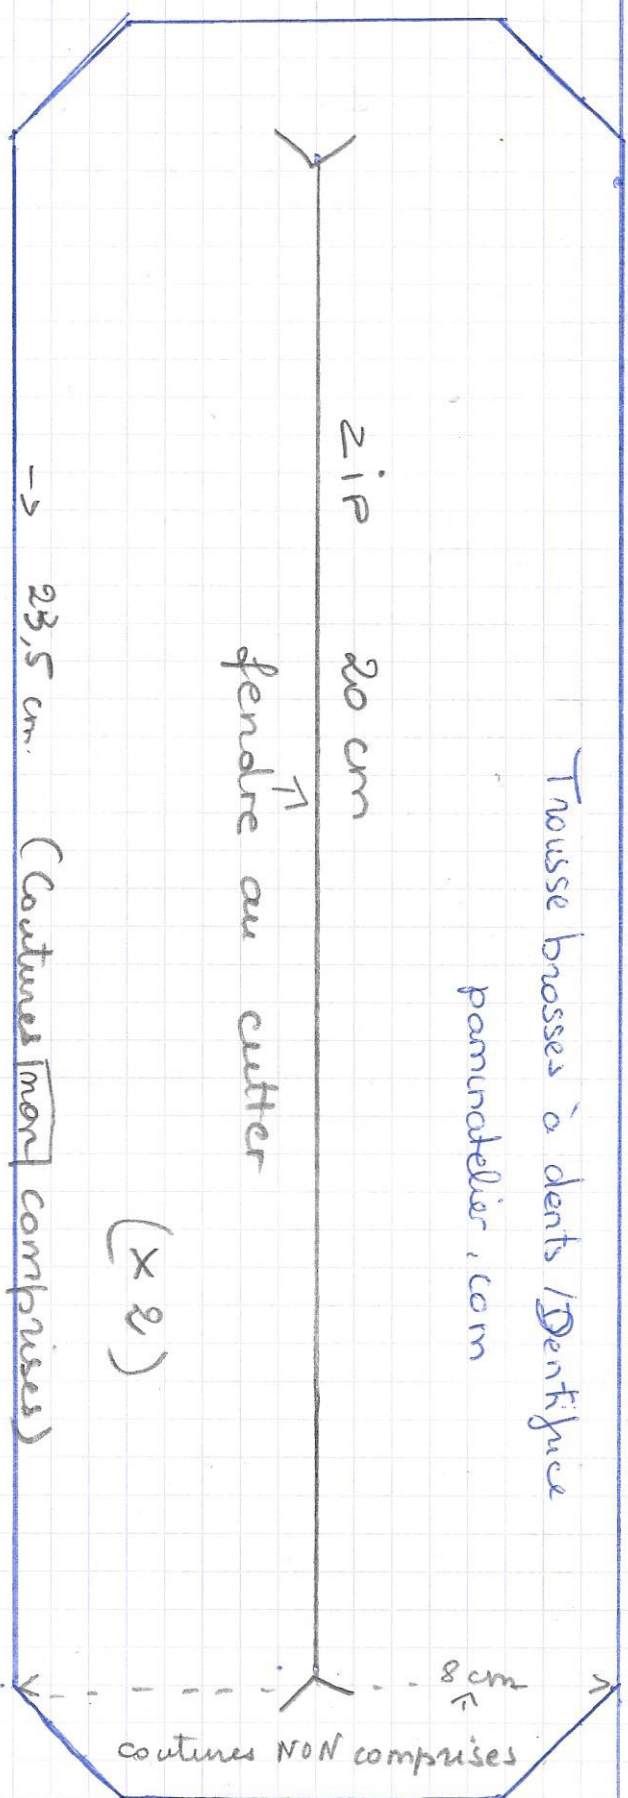 Trousse brosses à dents / Dentifrice
paminatelier.com
zip 20 cm
fendre au cutter
(x 2)
→ 23,5 cm. (Coutures non comprises)
8 cm
coutures NON comprises